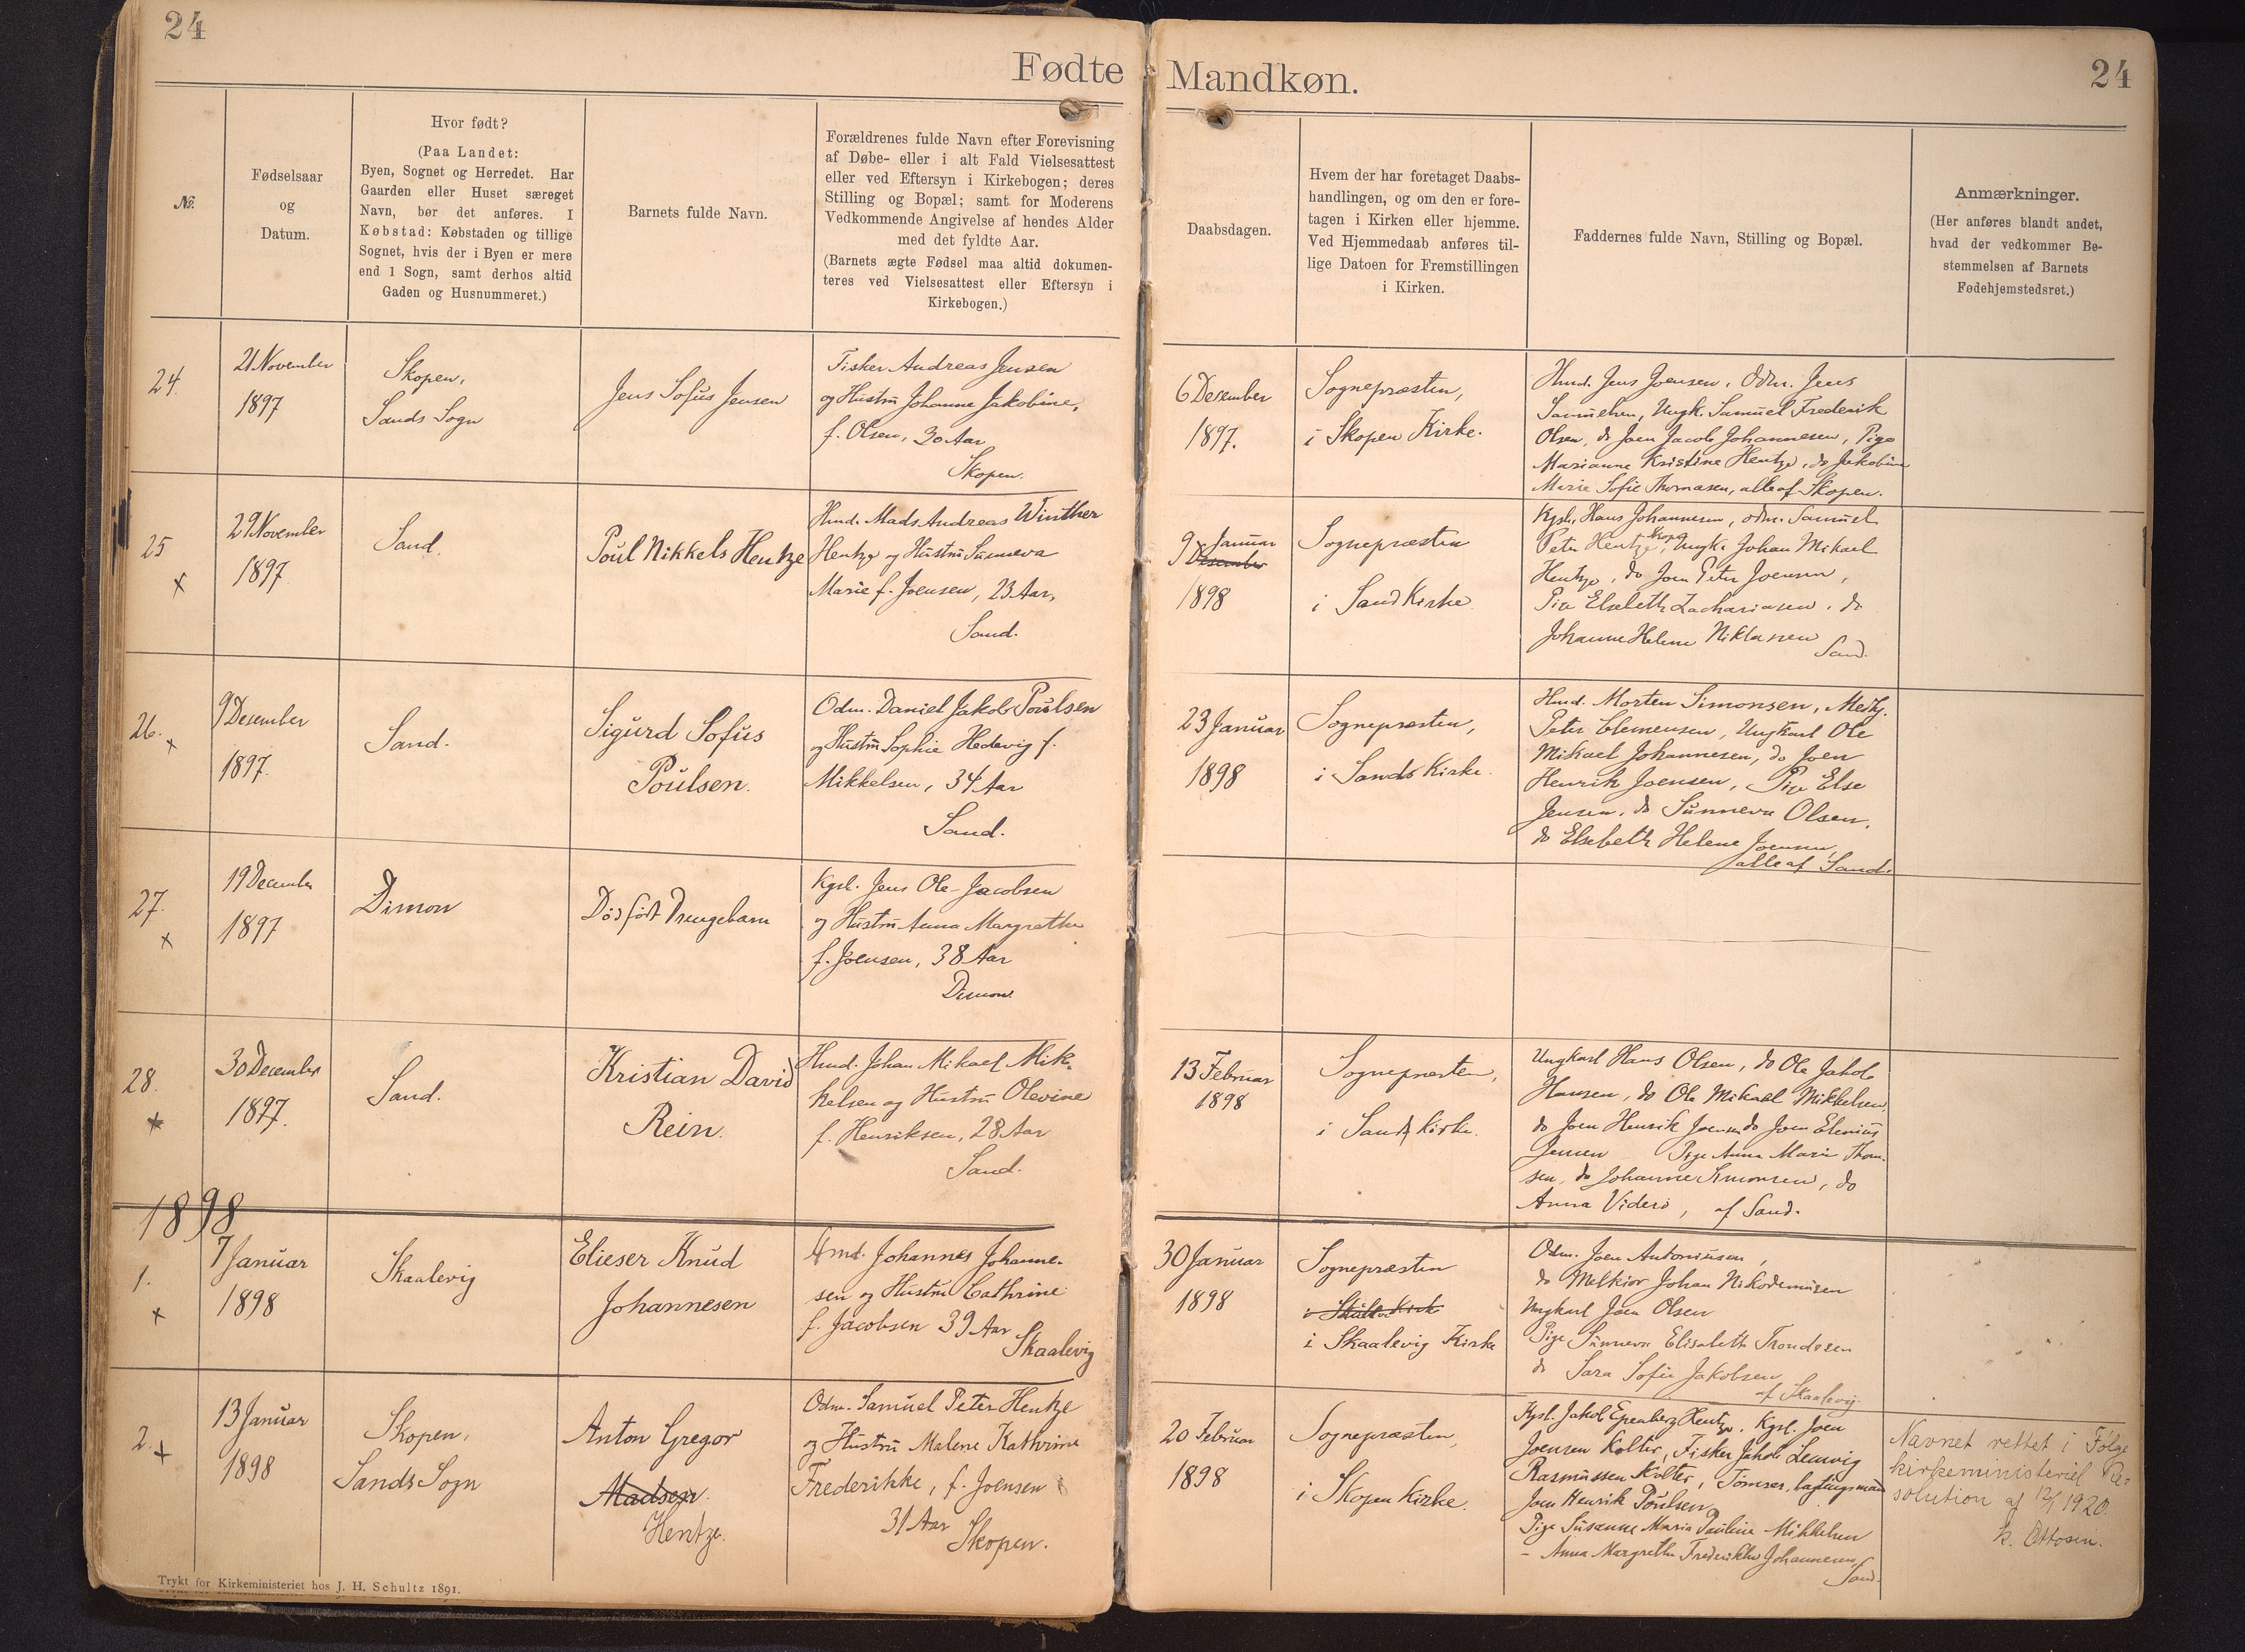 24
Fødte
Mandkøn.
24
№.
Fødselsaar
og
Datum.
Hvor født?
(Paa Landet:
Byen, Sognet og Herredet. Har
Gaarden eller Huset særeget
Navn, bør det anføres. I
Købstad: Købstaden og tillige
Sognet, hvis der i Byen er mere
end 1 Sogn, samt derhos altid
Gaden og Husnummeret.)
Barnets fulde Navn.
Forældrenes fulde Navn efter Forevisning
af Døbe- eller i alt Fald Vielsesattest
eller ved Eftersyn i Kirkebogen; deres
Stilling og Bopæl; samt for Moderens
Vedkommende Angivelse af hendes Alder
med det fyldte Aar.
(Barnets ægte Fødsel maa altid dokumen-
teres ved Vielsesattest eller Eftersyn i
Kirkebogen.)
Daabsdagen.
Hvem der har foretaget Daabs-
handlingen, og om den er fore-
tagen i Kirken eller hjemme.
Ved Hjemmedaab anføres til-
lige Datoen for Fremstillingen
i Kirken.
Faddernes fulde Navn, Stilling og Bopæl.
Anmærkninger.
(Her anføres blandt andet,
hvad der vedkommer Be-
stemmelsen af Barnets
Fødehjemstedsret.)
24.
21 November
1897
Skopen,
Sands Sogn
Jens Sofus Jensen
Fisker Andreas Jensen
og Hustru Johanne Jakobine,
f. Olsen, 30 Aar
Skopen.
6 December
1897.
Sognepræsten,
i Skopen Kirke.
Hmd. Jens Joensen, Odm. Jens
Samuelsen, Ungk. Samuel Frederik
Olsen, do Joen Jacob Johannesen, Pige
Marianne Kristine Hentze, do Jakobine
Marie Sofie Thomasen, alle af Skopen.
25
x
29 November
1897
Sand.
Poul Nikkels Hentze
Hmd. Mads Andreas Winther
Hentze og Hustru Sunneva
Marie f. Joensen, 23 Aar,
Sand.
9 December Januar
1898
Sognepræsten
i Sand Kirke
Kgsb. Hans Johannesen, Odm. Samuel
Peter Hentze, Ungk. Johan Mikael
Hentze, do Joen Peter Joensen,
Pige Elsebeth Zachariasen, do
Johanne Helene Niklasen
Sand.
26.
x
9 December
1897.
Sand.
Sigurd Sofus
Poulsen.
Odm. Daniel Jakob Poulsen
og Hustru Sophie Hedevig f.
Mikkelsen, 34 Aar
Sand.
23 Januar
1898
Sognepræsten,
i Sands Kirke.
Hmd. Morten Simonsen,
Peter Clemensen, Ungkarl Ole
Mikael Johannesen, do Joen
Henrik Joensen, Pige Else
Jensen, do Sunneva Olsen,
do Elsebeth Helene Joensen,
alle af Sand.
27.
x
19 December
1897
Dimon
Dødfødt Drengebarn
Kgsb. Jens Ole Jacobsen
og Hustru Anna Margrethe
f. Joensen, 38 Aar
Dimon
28.
x
30 December
1897.
Sand.
Kristian David
Rein.
Hmd. Johan Mikael Mik-
kelsen og Hustru Olevine
f. Henriksen, 28 Aar
Sand.
13 Februar
1898
Sognepræsten,
i Sands Kirke.
Ungkarl Hans Olsen, do Ole Jakob
Hansen, do Ole Mikael Mikkelsen,
do Joen Henrik Joensen do Joen Elenius
Jensen Pige Anna Marie Thom-
sen, do Johanne Simonsen, do
Anna Viderö, af Sand.
1898
1.
x
7 Januar
1898
Skaalevig
Elieser Knud
Johannesen
Hmd. Johannes Johanne-
sen og Hustru Cathrine
f. Jacobsen 39 Aar
Skaalevig
30 Januar
1898
Sognepræsten
i Skaalevig Kirke
Odm. Joen Antoniusen,
do Melkior Johan Nikodemusen
Ungkarl Joen Olsen
Pige Sunneva Elisabeth Trondesen
do Sara Sofie Jakobsen
af Skaalevig.
2.
x
13 Januar
1898
Skopen,
Sands Sogn
Anton Gregor
Madsen.
Hentze.
Odm. Samuel Peter Hentze
og Hustru Malene Kathrine
Frederikke, f. Joensen
31 Aar
Skopen.
20 Februar
1898
Sognepræsten,
i Skopen Kirke.
Kgsb. Jakob Hentze, Kgsb. Joen
Joensen Kolter, Fisker Jakob Ludvig
Rasmussen Kolter, Tømrer, lagtingsmand
Joen Henrik Poulsen
Pige Susanne Maria Pauline Mikkelsen
- Anna Margrethe Frederikke Johannesen,
Sand.
Navnet rettet i Følge
kirkeministeriel Re-
solution af 12/1 1920.
K. Ottosen.
Trykt for Kirkeministeriet hos J. H. Schultz 1891.